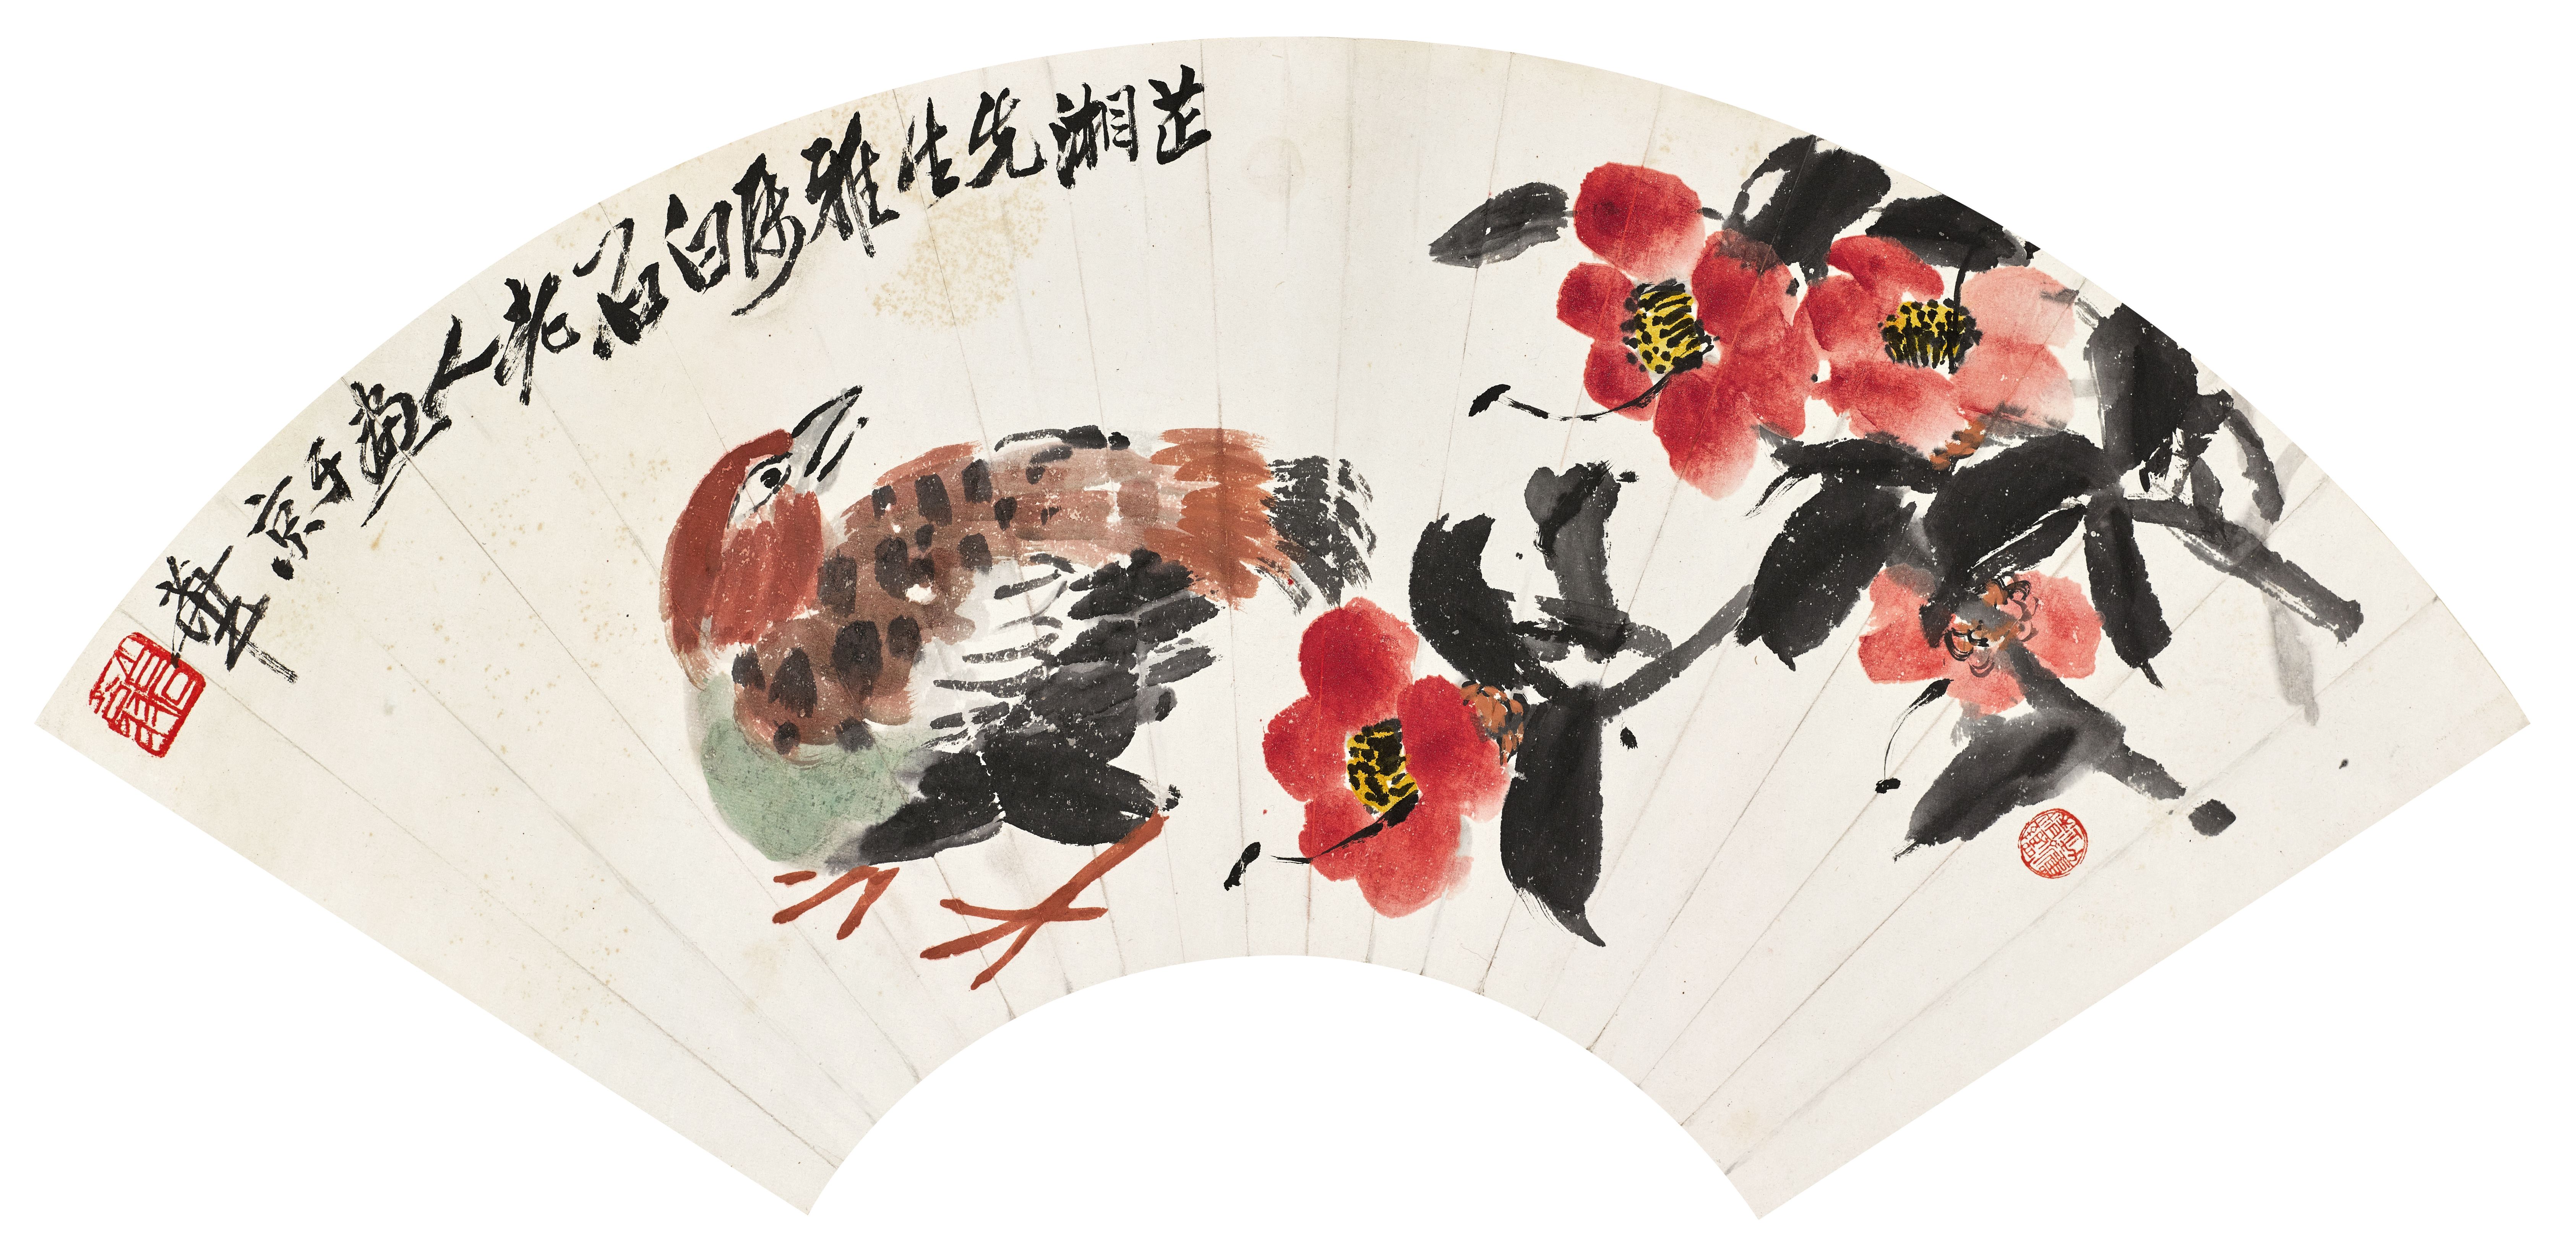 芷湘先生雅屬白石老人畫于京華